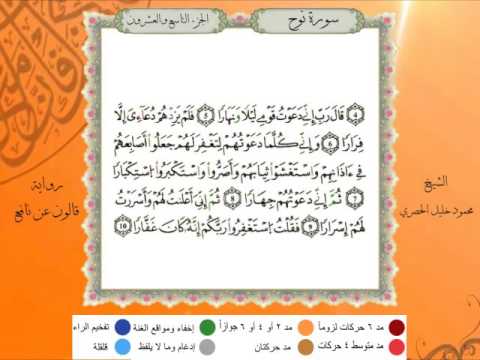 سورة نوح
الجزء التاسع والعشرون
④ قَالَ رَبِّ إِنِّي دَعَوْتُ قَوْمِي لَيْلًا وَنَهَارًا ⑤ فَلَمْ يَزِدْهُمْ دُعَآءِيَ إِلَّا
فِرَارًا ⑥ وَإِنِّي كُلَّمَا دَعَوْتُهُمْ لِتَغْفِرَ لَهُمْ جَعَلُوٓا أَصَٰبِعَهُمْ
فِيٓ ءَاذَانِهِمْ وَاسْتَغْشَوْا ثِيَابَهُمْ وَأَصَرُّوا وَاسْتَكْبَرُوا اسْتِكْبَارًا
⑦ ثُمَّ إِنِّي دَعَوْتُهُمْ جِهَارًا ⑧ ثُمَّ إِنِّيَ أَعْلَنتُ لَهُمْ وَأَسْرَرْتُ
لَهُمْ إِسْرَارًا ⑨ فَقُلْتُ اسْتَغْفِرُوا رَبَّكُمْ إِنَّهُ كَانَ غَفَّارًا ⑩
الشيخ
محمود خليل الحصري
رواية
قالون عن نافع
مد ٦ حركات لزوماً
مد ٢ أو ٤ أو ٦ جوازاً
إخفاء ومواقع الغنة
تفخيم الراء
مد متوسط ٤ حركات
مد حركتان
إدغام وما لا يلفظ
قلقلة